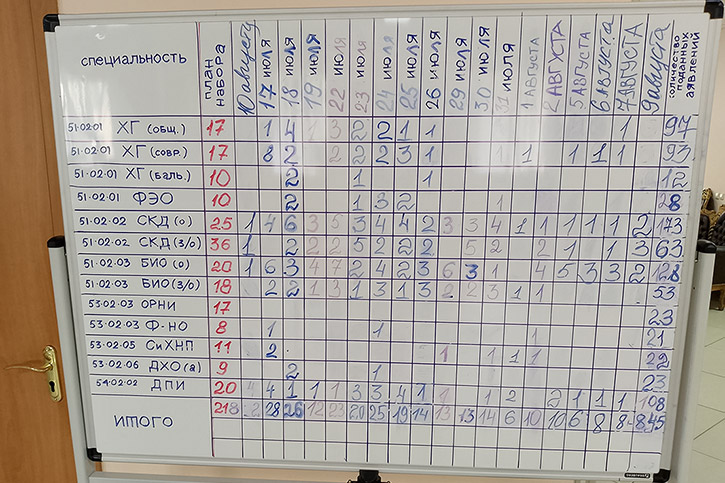 специальность план набора 10 августа 17 июля 18 июля 19 июля 22 июля 23 июля 24 июля 25 июля 26 июля 29 июля 30 июля 31 июля 1 августа 2 августа 5 августа 6 августа 7 августа 9 августа количество поданных заявлений
51.02.01 ХГ (общ.) 17 1 4 1 3 2 2 1 1 1 97
51.02.01 ХГ (совр.) 17 8 2 2 2 2 3 1 1 1 1 1 1 93
51.02.01 ХГ (баль.) 10 2 1 1 12
51.02.01 ФЭО 10 2 1 3 2 1 28
51.02.02 СКД (о) 25 1 4 6 3 5 3 4 4 2 3 3 4 1 1 1 1 1 2 173
51.02.02 СКД (з/о) 36 1 2 2 2 5 2 2 2 5 2 2 1 1 3 63
51.02.03 БИО (о) 20 1 6 3 4 7 2 4 2 3 6 3 1 4 5 3 3 2 128
51.02.03 БИО (з/о) 18 2 2 1 3 1 3 1 3 2 2 3 1 1 53
53.02.03 ОРНИ 17 23
53.02.03 Ф-НО 8 1 1 1 21
53.02.05 СиХНП 11 2 1 1 1 1 22
53.02.06 ДХО (а) 9 2 1 23
54.02.02 ДПИ 20 4 4 1 1 1 3 3 4 1 1 1 2 2 1 1 1 108
ИТОГО 218 2 28 26 12 23 20 25 19 14 13 13 14 6 10 10 6 8 8 845